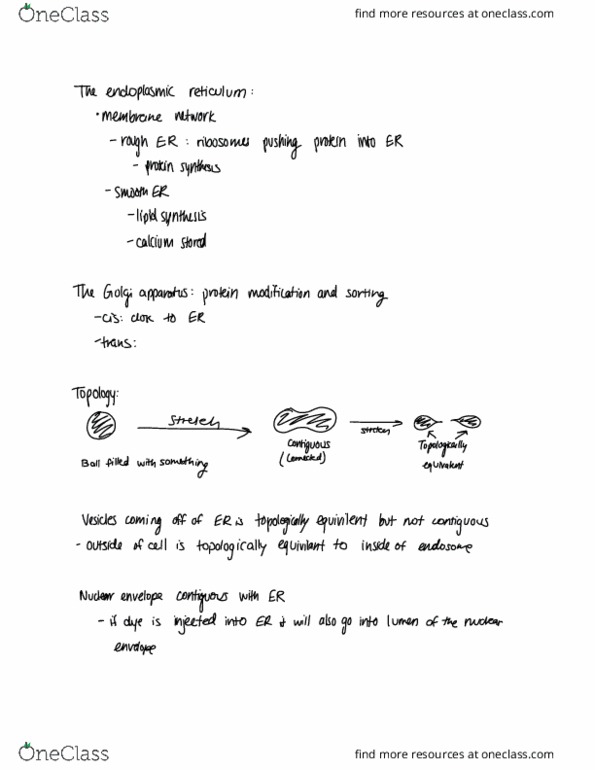 OneClass
find more resources at oneclass.com
The endoplasmic reticulum:
• membrane network
- rough ER : ribosomes pushing protein into ER
- protein synthesis
- smooth ER
- lipid synthesis
- calcium stored
The Golgi apparatus: protein modification and sorting
- cis: close to ER
- trans:
Topology:
stretch
stretch
Ball filled with something
contiguous
(connected)
Topologically
equivalent
Vesicles coming off of ER is topologically equivilent but not contiguous
- outside of cell is topologically equivilant to inside of endosome
Nuclear envelope contiguous with ER
- if dye is injected into ER it will also go into lumen of the nuclear
envelope
OneClass
find more resources at oneclass.com